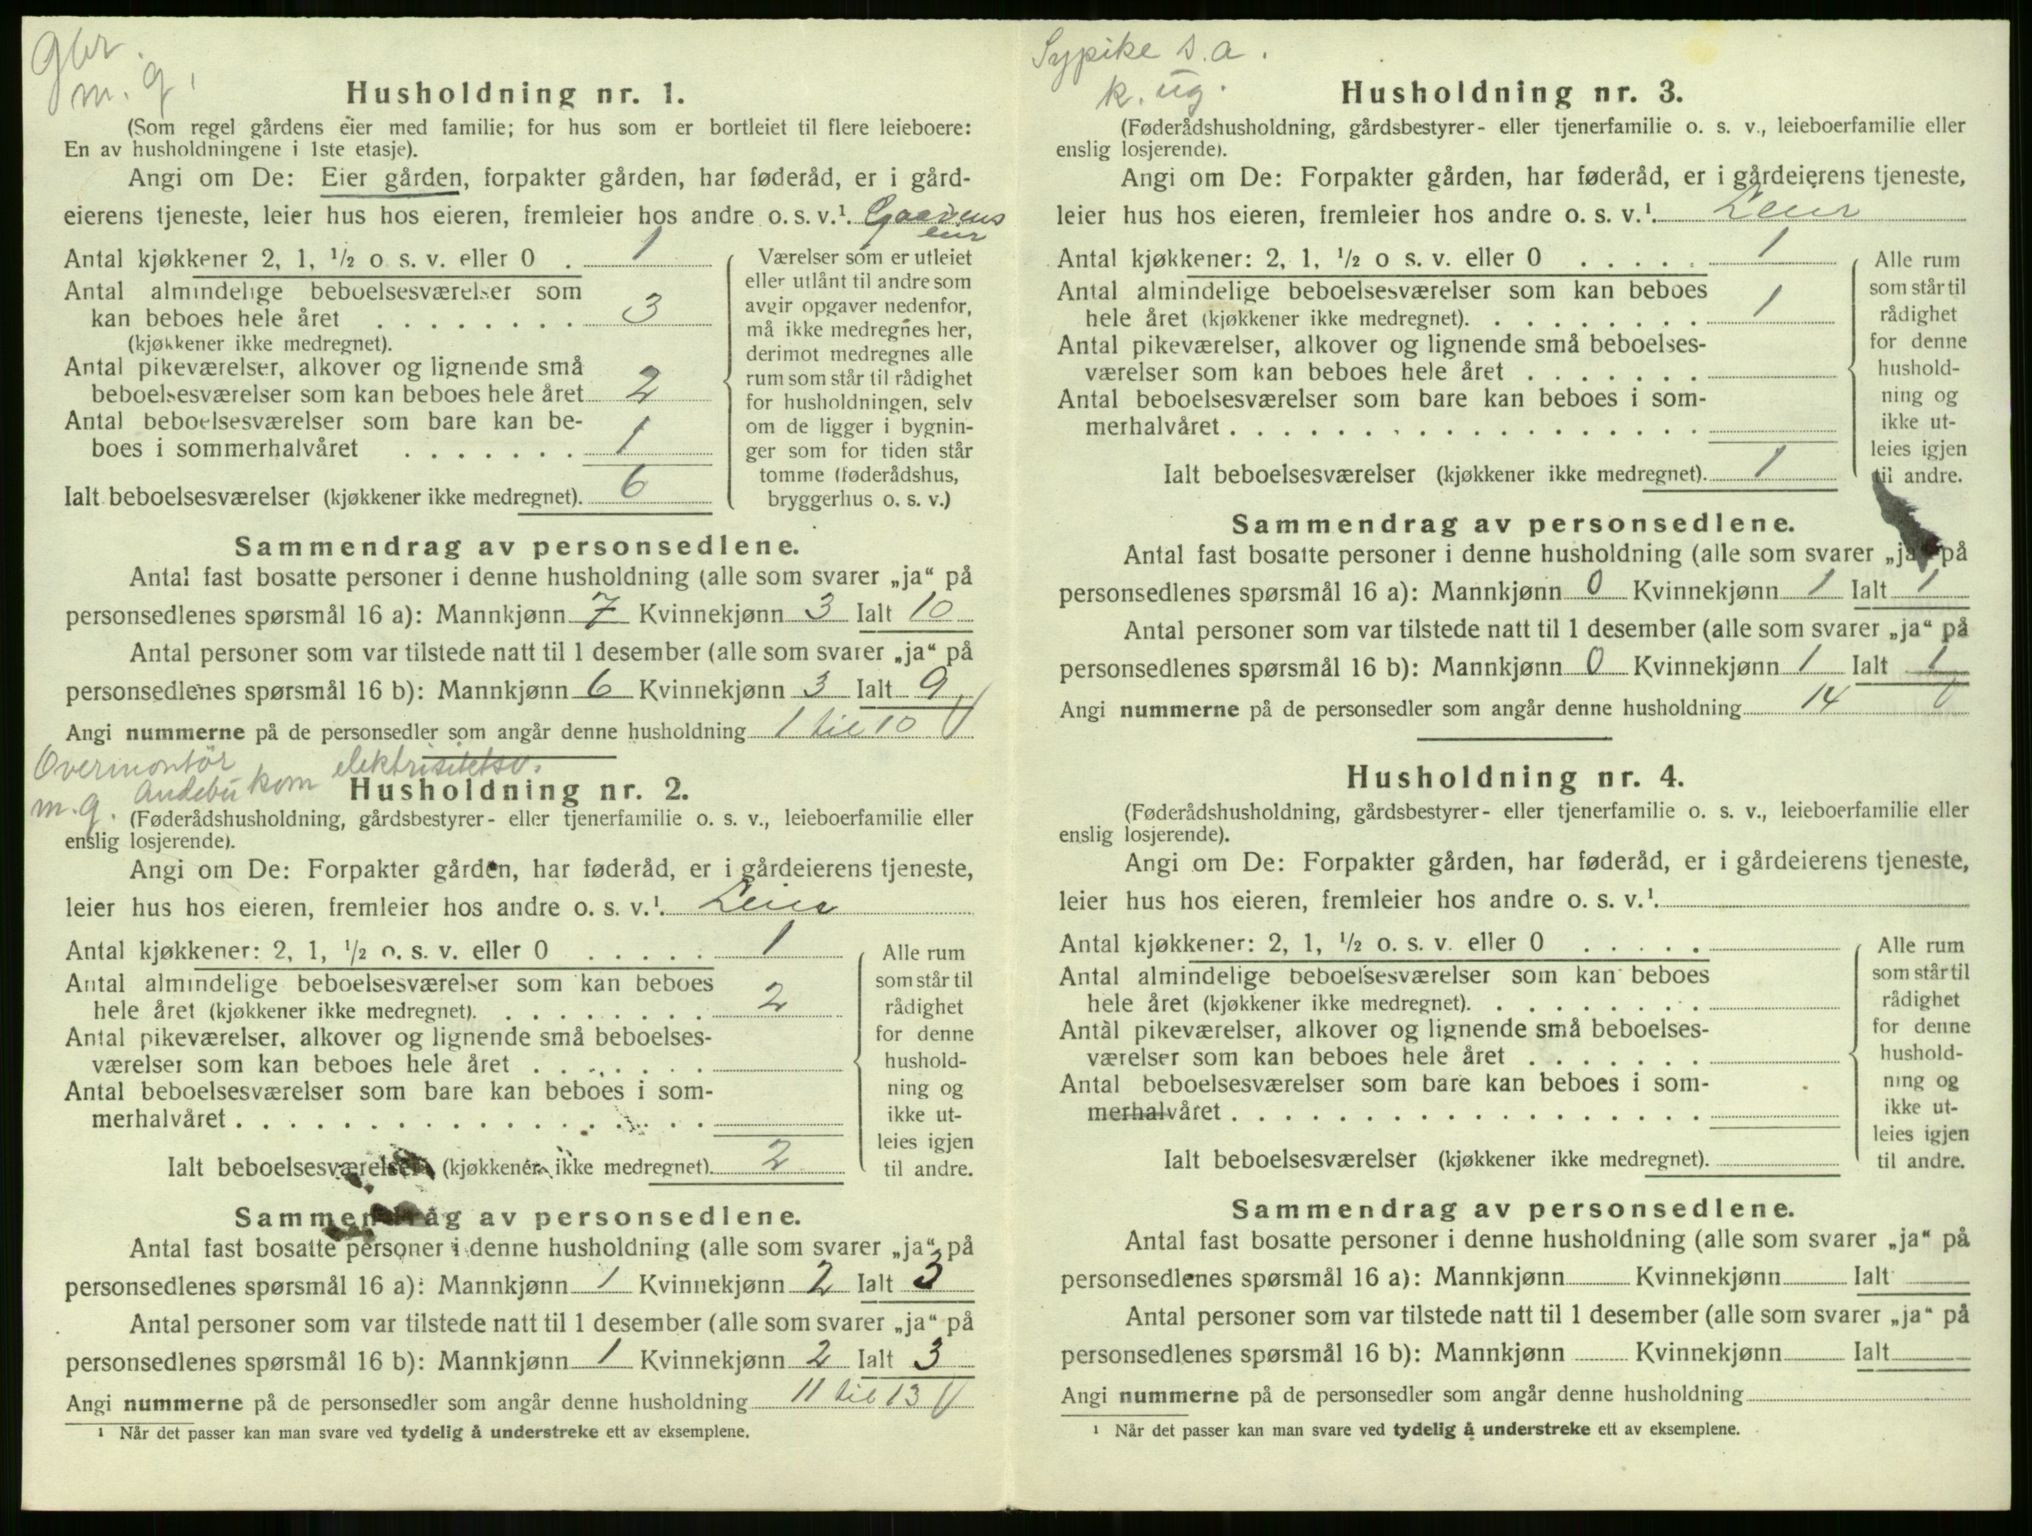 Gbr.
m. g.
Husholdning nr. 1.
(Som regel gårdens eier med familie; for hus som er bortleiet til flere leieboere:
En av husholdningene i 1ste etasje).
Angi om De: Eier gården, forpakter gården, har føderåd, er i gård-
eierens tjeneste, leier hus hos eieren, fremleier hos andre o. s. v.¹ Gaardens
eier
Antal kjøkkener 2, 1, ½ o s. v. eller 0 . 1
Antal almindelige beboelsesværelser som
kan beboes hele året . . . . . . . . 3
(kjøkkener ikke medregnet).
Antal pikeværelser, alkover og lignende små
beboelsesværelser som kan beboes hele året 2
Antal beboelsesværelser som bare kan be-
boes i sommerhalvåret . . . . . . . 1
Ialt beboelsesværelser (kjøkkener ikke medregnet). 6
Værelser som er utleiet
eller utlånt til andre som
avgir opgaver nedenfor,
må ikke medregnes her,
derimot medregnes alle
rum som står til rådighet
for husholdningen, selv
om de ligger i bygnin-
ger som for tiden står
tomme (føderådshus,
bryggerhus o. s. v.)
Sammendrag av personsedlene.
Antal fast bosatte personer i denne husholdning (alle som svarer „ja“ på
personsedlenes spørsmål 16 a): Mannkjønn 7 Kvinnekjønn 3 Ialt 10
Antal personer som var tilstede natt til 1 desember (alle som svarer „ja“ på
personsedlenes spørsmål 16 b): Mannkjønn 6 Kvinnekjønn 3 Ialt 9
Angi nummerne på de personsedler som angår denne husholdning 1 til 10
Overmontør elektrisitetsv.
m. g. Andebu kom
Husholdning nr. 2.
(Føderådshusholdning, gårdsbestyrer- eller tjenerfamilie o. s. v., leieboerfamilie eller
enslig losjerende).
Angi om De: Forpakter gården, har føderåd, er i gårdeierens tjeneste,
leier hus hos eieren, fremleier hos andre o. s. v.¹. Leier
Antal kjøkkener: 2, 1, ½ o. s. v. eller 0 . . . . . 1
Antal almindelige beboelsesværelser som kan beboes
hele året (kjøkkener ikke medregnet). . . . . . . . . 2
Antal pikeværelser, alkover og lignende små beboelses-
værelser som kan beboes hele året . . . . . . .
Antal beboelsesværelser som bare kan beboes i som-
merhalvåret . . . . . . . . . . . . . . . . . .
Ialt beboelsesværelser (kjøkkener ikke medregnet). 2
Alle rum
som står til
rådighet
for denne
hushold-
ning og
ikke ut-
leies igjen
til andre.
Sammendrag av personsedlene.
Antal fast bosatte personer i denne husholdning (alle som svarer „ja“ på
personsedlenes spørsmål 16 a): Mannkjønn 1 Kvinnekjønn 2 Ialt 3
Antal personer som var tilstede natt til 1 desember (alle som svarer „ja“ på
personsedlenes spørsmål 16 b): Mannkjønn 1 Kvinnekjønn 2 Ialt 3
Angi nummerne på de personsedler som angår denne husholdning 11 til 13
¹ Når det passer kan man svare ved tydelig å understreke ett av eksemplene.
Sypike s. a.
k. ug.
Husholdning nr. 3.
(Føderådshusholdning, gårdsbestyrer- eller tjenerfamilie o. s. v., leieboerfamilie eller
enslig losjerende).
Angi om De: Forpakter gården, har føderåd, er i gårdeierens tjeneste,
leier hus hos eieren, fremleier hos andre o. s. v.¹. Leier
Antal kjøkkener: 2, 1, ½ o s. v. eller 0 . . . . . 1
Antal almindelige beboelsesværelser som kan beboes
hele året (kjøkkener ikke medregnet). . . . . . . . . 1
Antal pikeværelser, alkover og lignende små beboelses-
værelser som kan beboes hele året . . . . . . .
Antal beboelsesværelser som bare kan beboes i som-
merhalvåret . . . . . . . . . . . . . . . . . .
Ialt beboelsesværelser (kjøkkener ikke medregnet). 1
Alle rum
som står til
rådighet
for denne
hushold-
ning og
ikke ut-
leies igjen
til andre.
Sammendrag av personsedlene.
Antal fast bosatte personer i denne husholdning (alle som svarer „ja“ på
personsedlenes spørsmål 16 a): Mannkjønn 0 Kvinnekjønn 1 Ialt 1
Antal personer som var tilstede natt til 1 desember (alle som svarer „ja“ på
personsedlenes spørsmål 16 b): Mannkjønn 0 Kvinnekjønn 1 Ialt 1
Angi nummerne på de personsedler som angår denne husholdning 14
Husholdning nr. 4.
(Føderådshusholdning, gårdsbestyrer- eller tjenerfamilie o. s. v., leieboerfamilie eller
enslig losjerende).
Angi om De: Forpakter gården, har føderåd, er i gårdeierens tjeneste,
leier hus hos eieren, fremleier hos andre o. s. v.¹.
Antal kjøkkener: 2, 1, ½ o. s. v. eller 0 . . . . .
Antal almindelige beboelsesværelser som kan beboes
hele året (kjøkkener ikke medregnet). . . . . . . . .
Antal pikeværelser, alkover og lignende små beboelses-
værelser som kan beboes hele året . . . . . . .
Antal beboelsesværelser som bare kan beboes i som-
merhalvåret . . . . . . . . . . . . . . . . . .
Ialt beboelsesværelser (kjøkkener ikke medregnet).
Alle rum
som står til
rådighet
for denne
hushold-
ning og
ikke ut-
leies igjen
til andre.
Sammendrag av personsedlene.
Antal fast bosatte personer i denne husholdning (alle som svarer „ja“ på
personsedlenes spørsmål 16 a): Mannkjønn Kvinnekjønn Ialt
Antal personer som var tilstede natt til 1 desember (alle som svarer „ja“ på
personsedlenes spørsmål 16 b): Mannkjønn Kvinnekjønn Ialt
Angi nummerne på de personsedler som angår denne husholdning
¹ Når det passer kan man svare ved tydelig å understreke ett av eksemplene.